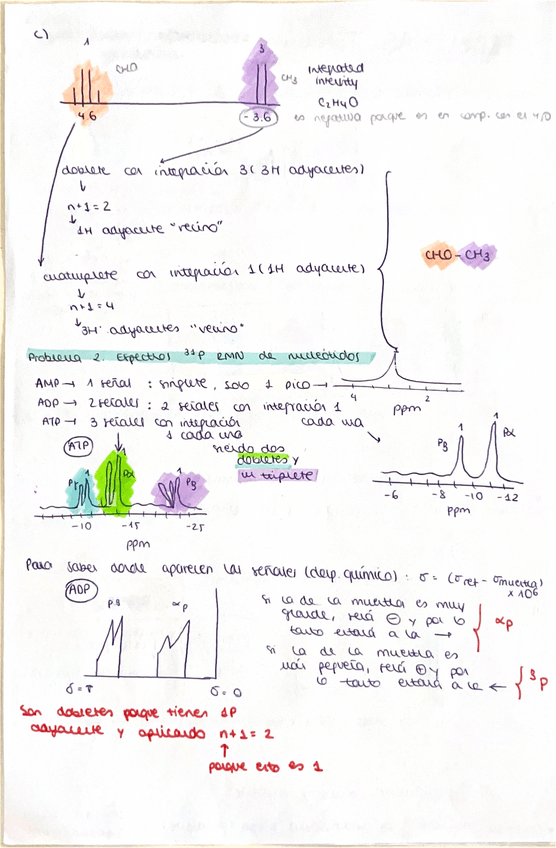 c)
1
3
CHO
CH₃
Integrated
intensity
C₂H₄O
4.6
-3.6
es negativa porque es en comp. con el H₂O
doblete con integración 3 (3H adyacentes)
n+1=2
1H adyacente "vecino"
cuatruplete con integración 1 (1H adyacente)
n+1=4
3H adyacentes "vecino"
CHO-CH₃
Problema 2. Espectros ³¹P RMN de nucleótidos
AMP → 1 señal : singlete, solo 1 pico →
4
2
ppm
ADP → 2 señales : 2 señales con integración 1
cada una
ATP → 3 señales con integración
1 cada una
siendo dos
dobletes y
un triplete
ATP
1
Pγ
1
Pα
1
Pβ
-10
-15
-25
ppm
1
Pβ
1
Pα
-6
-8
-10
-12
ppm
Para saber donde aparecen las señales (desp. químico) : σ = (σref - σmuestra)
x 10⁶
ADP
Pβ
αP
σ = ↑
σ = 0
si la de la muestra es muy
grande, será ⊖ y por lo
tanto estará a la →
αP
si la de la muestra es
más pequeña, será ⊕ y por
lo tanto estará a la ←
βP
Son dobletes porque tienen 1P
adyacente y aplicando n+1=2
↑
porque esto es 1